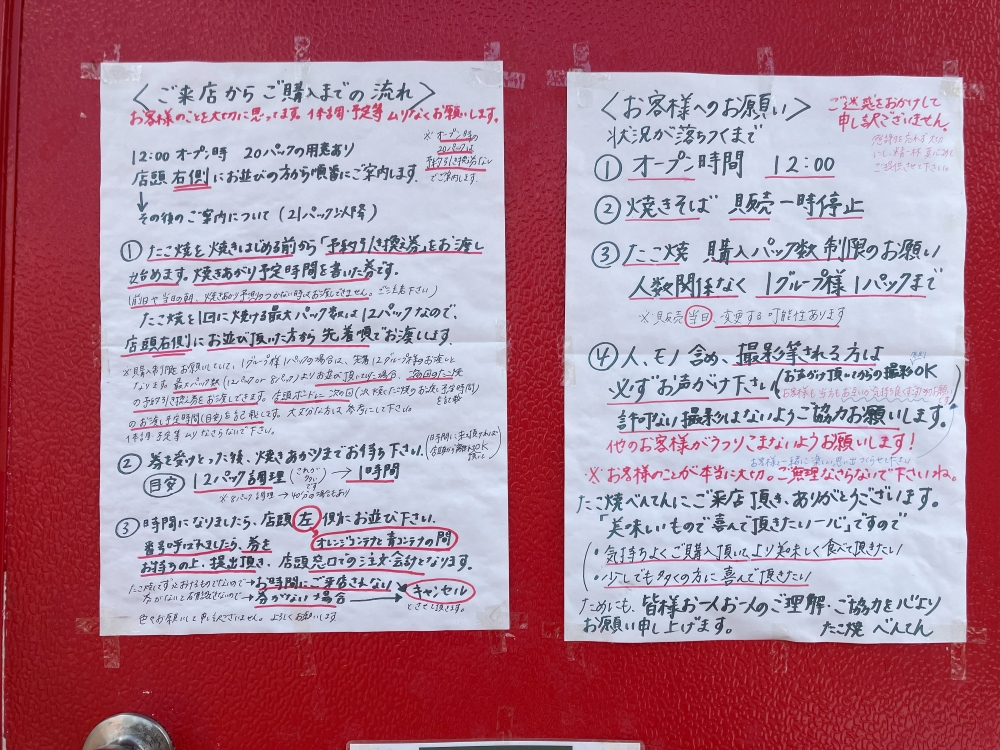 〈ご来店からご購入までの流れ〉
お客様のことを大切に思ってます。体調・予定等ムリなくお願いします。
※オープン時の
20パックは
予約引き換え券ない
でご案内します。
12:00 オープン時 20パックの用意あり
店頭右側にお並びの方から順番にご案内します。
↓
その後のご案内について (21パック以降)
① たこ焼を焼きはじめる前から「予約引き換え券」をお渡し
始めます。焼きあがり予定時間を書いた券です。
(前日や当日の朝、焼きあがり予想のつかない時はお渡しできません。ご注意下さい)
たこ焼を1回に焼ける最大パック数は12パックなので、
店頭右側にお並び頂いた方から先着順でお渡します。
※購入制限お願いしていて、1グループ様1パックの場合は、先着12グループ様のお渡しと
なります。最大パック数(12パックor8パック)よりお並び頂いてた場合、次回のたこ焼
の予約引き換え券をお渡してきます。店頭ボードに次の回(次焼くたこ焼のお渡し予定時間)
のお渡し予定時間(目安)を記載します。大丈夫な方は、参考にして下さい。
体調・予定等ムリなさらないで下さい。
② 券を受けとった後、焼きあがりまでお待ち下さい。
(時間に来て頂ければ
店頭から離れてOK
目安 12パック調理 (これが多いです) → 1時間
※8パック調理 → 40分の場合もあり
③ 時間になりましたら、店頭左側にお並び下さい。
オレンジコンテナと青コンテナの間
番号呼ばれましたら、券を
お持ちの上、提出頂き、店頭窓口での注文・会計となります。
→お時間にご来店されない
券がないと確認できないので→券がない場合 → キャンセル
とさせて頂きます。
色々お願いして申し訳ございません。よろしくお願いします
〈お客様へのお願い〉
状況が落ちつくまで
ご迷惑をおかけして
申し訳ございません。
① オープン時間 12:00
② 焼きそば 販売一時停止
③ たこ焼 購入パック数制限のお願い
人数関係なく 1グループ様1パックまで
※販売当日、変更する可能性あります
④ 人、モノ含め、撮影等される方は
必ずお声がけ下さい (お声がけ頂いてからの撮影OK
許可ない撮影はないようご協力お願いします。
他のお客様がうつりこまないようお願いします!
※お客様のことが本当に大切。ご無理なさらないで下さいね。
たこ焼べんてんにご来店頂き、ありがとうございます。
「美味しいもので喜んで頂きたい一心」ですので
・気持ちよくご購入頂いて、より美味しく食べて頂きたい
・少しでも多くの方に喜んで頂きたい
ためにも、皆様お一人お一人のご理解・ご協力を心より
お願い申し上げます。 たこ焼 べんてん